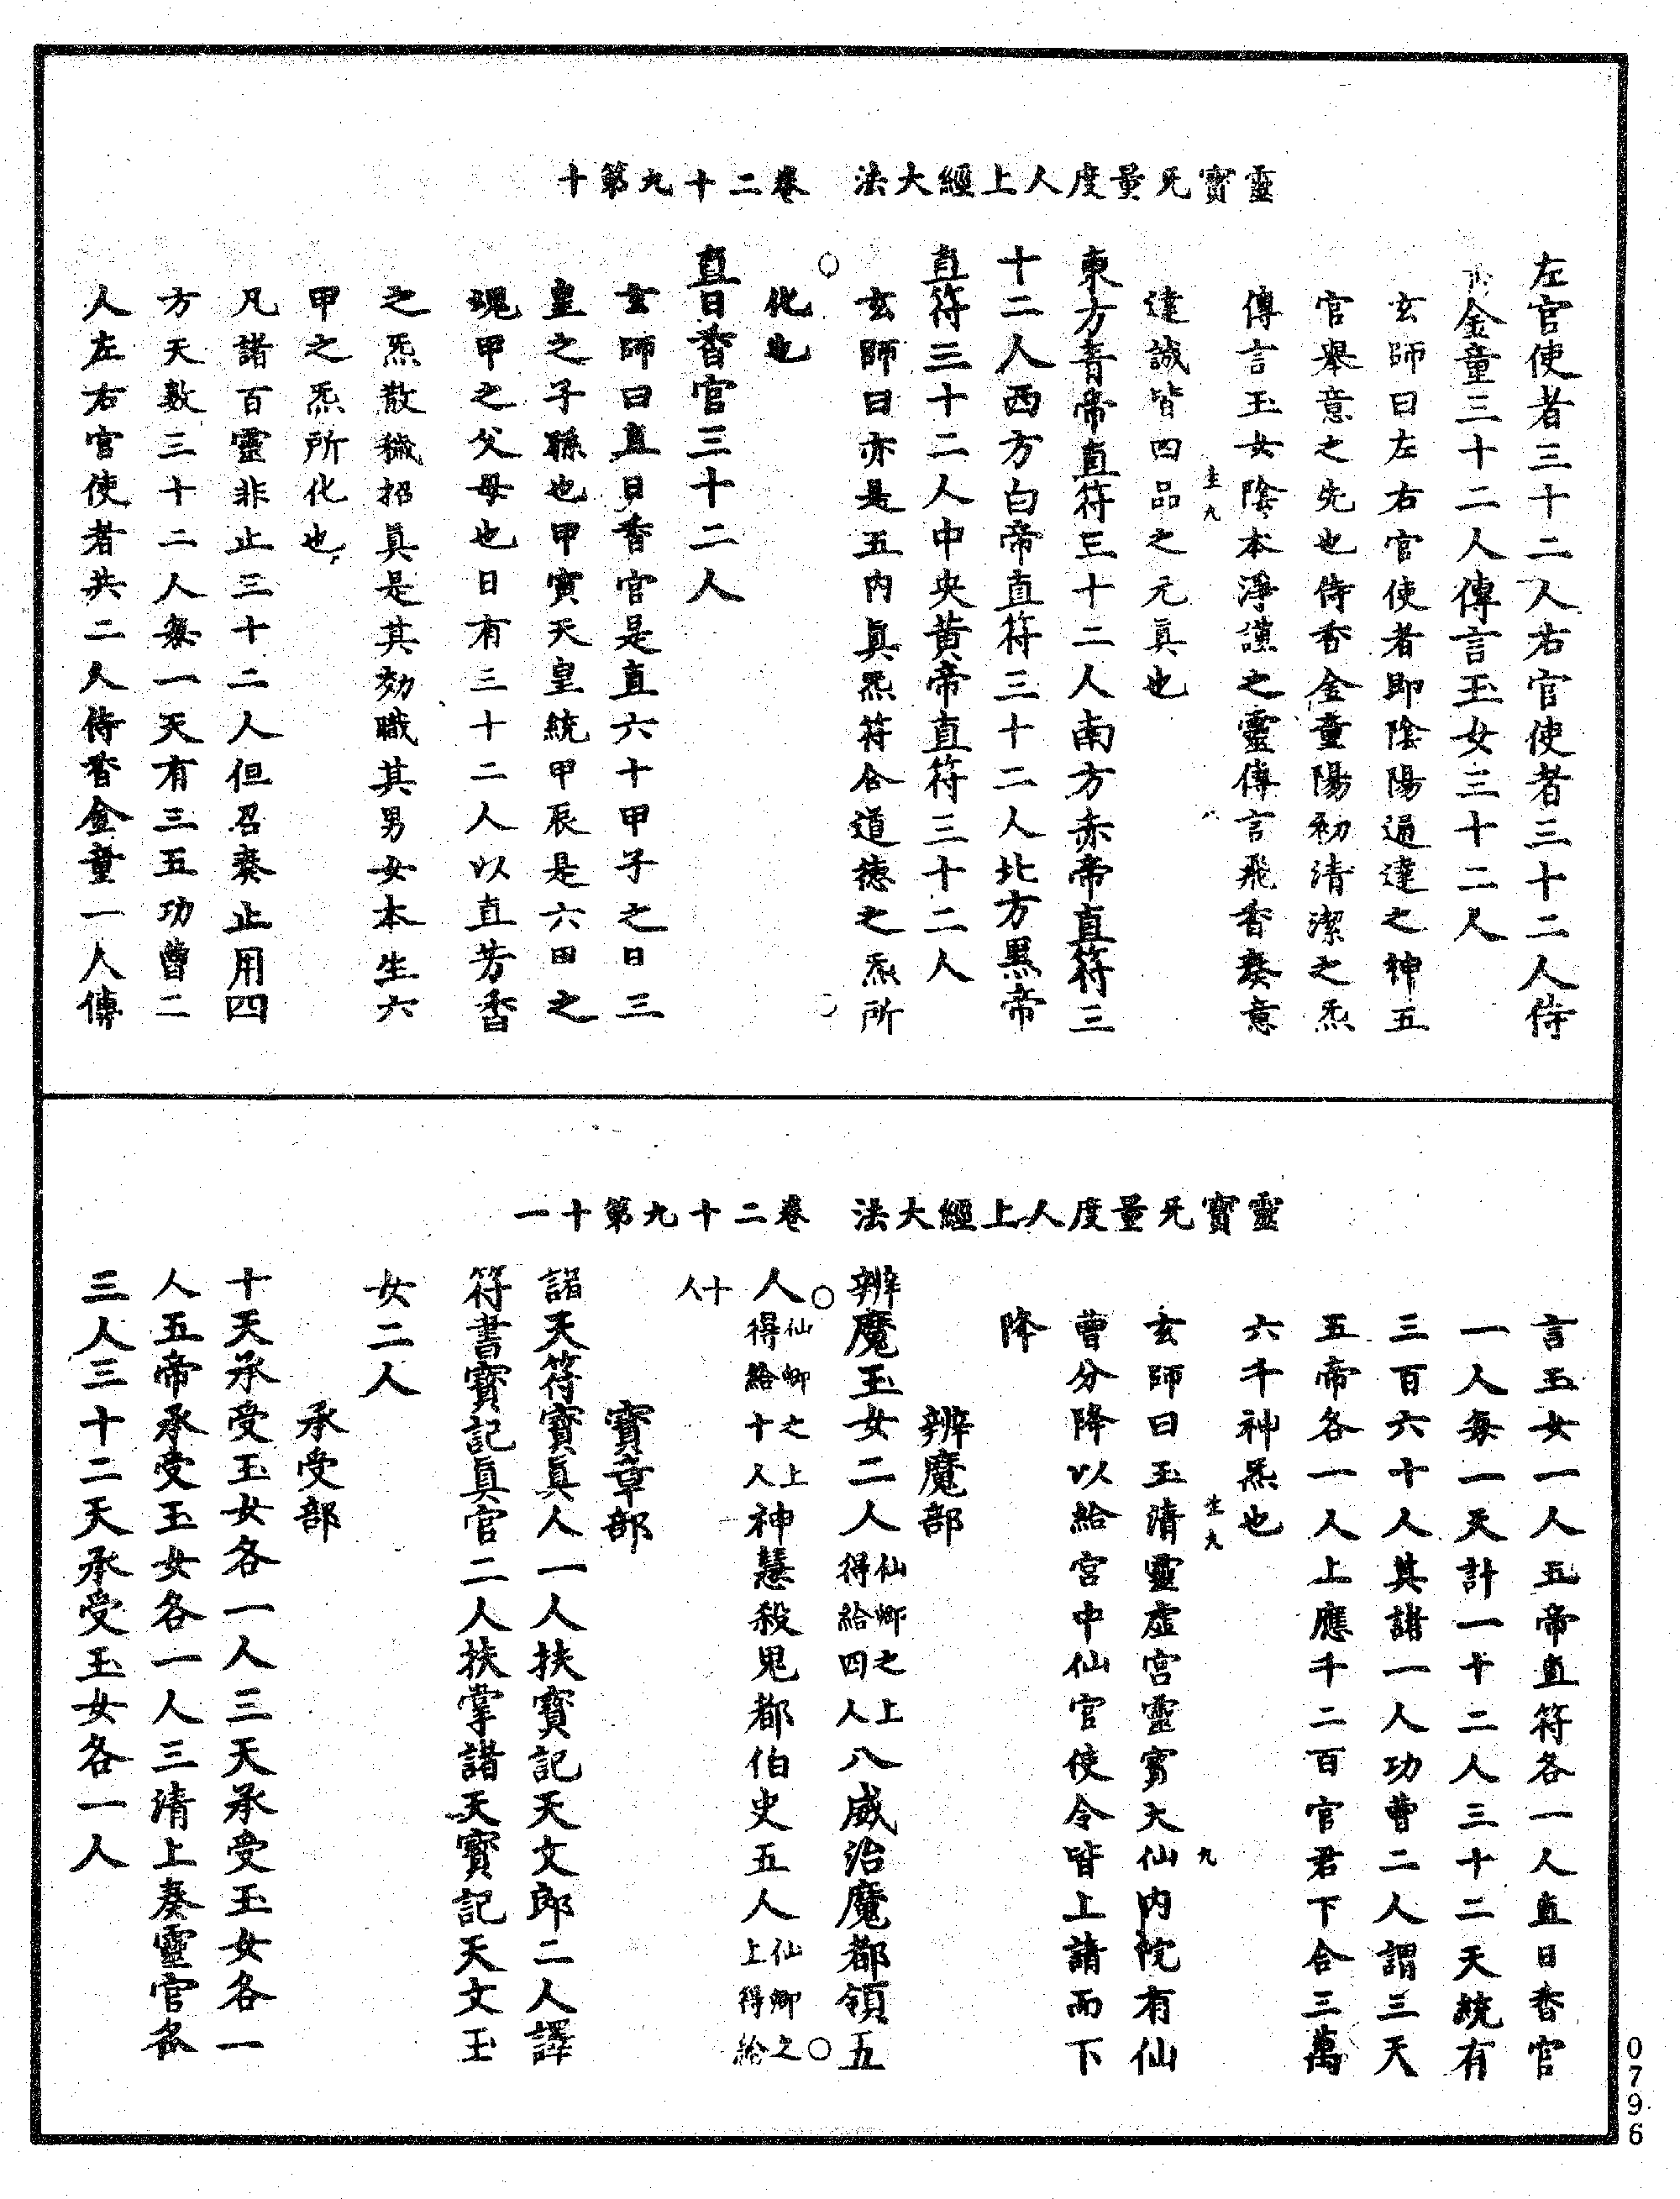 靈寶旡量度人上經大法　卷二十九第十
左官使者三十二人右官使者三十二人侍
金童三十二人傳言玉女三十二人
玄師曰左右官使者即陰陽通達之神五
官舉意之先也侍香金童陽初清潔之炁
傳言玉女陰本淨謹之靈傳言飛香奏意
達誠皆四品之元真也
東方青帝直符三十二人南方赤帝直符三
十二人西方白帝直符三十二人北方黑帝
直符三十二人中央黄帝直符三十二人
玄師曰亦是五内真炁符合道德之炁所
化也
直日香官三十二人
玄師曰直日香官是直六十甲子之日三
皇之子孫也甲寅天皇統甲辰是六田之
魂甲之父母也日有三十二人以直芳香
之炁散穢招真是其効職其男女本生六
甲之炁所化也
凡諸百靈非止三十二人但召奏止用四
方天數三十二人每一天有三五功曹二
人左右官使者共二人侍香金童一人傳
靈寶旡量度人上經大法　卷二十九第十一
言玉女一人五帝直符各一人直日香官
一人每一天計一十二人三十二天統有
三百六十人其諸一人功曹二人謂三天
五帝各一人上應千二百官君下合三萬
六千神炁也
玄師曰玉清靈虛宮靈寶大仙内院有仙
曹分降以給宮中仙官使令皆上請而下
降
辨魔部
辨魔玉女二人仙卿之上得給四人八威治魔都領五
人仙卿之上得給十人神慧殺鬼都伯史五人仙卿之上得給
十人
寶章部
詔天符寶真人一人扶寶記天文郎二人譯
符書寶記真官二人扶掌諸天寶記天文玉
女二人
承受部
十天承受玉女各一人三天承受玉女各一
人五帝承受玉女各一人三清上奏靈官各
三人三十二天承受玉女各一人
0796